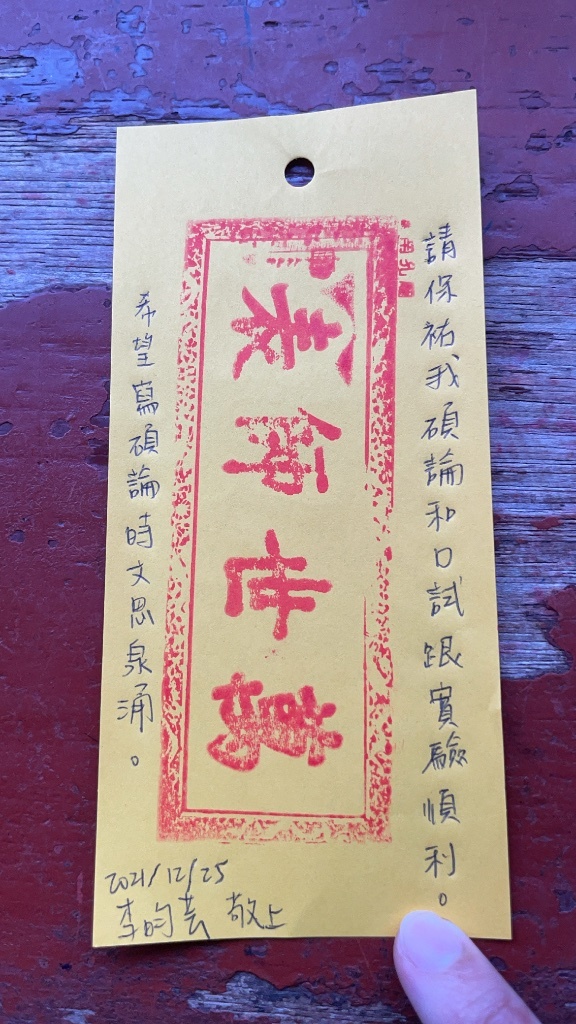 請保祐我碩論和口試跟實驗順利。
萬世師表
希望寫碩論時文思泉涌。
2021/12/25
李昀芸 敬上